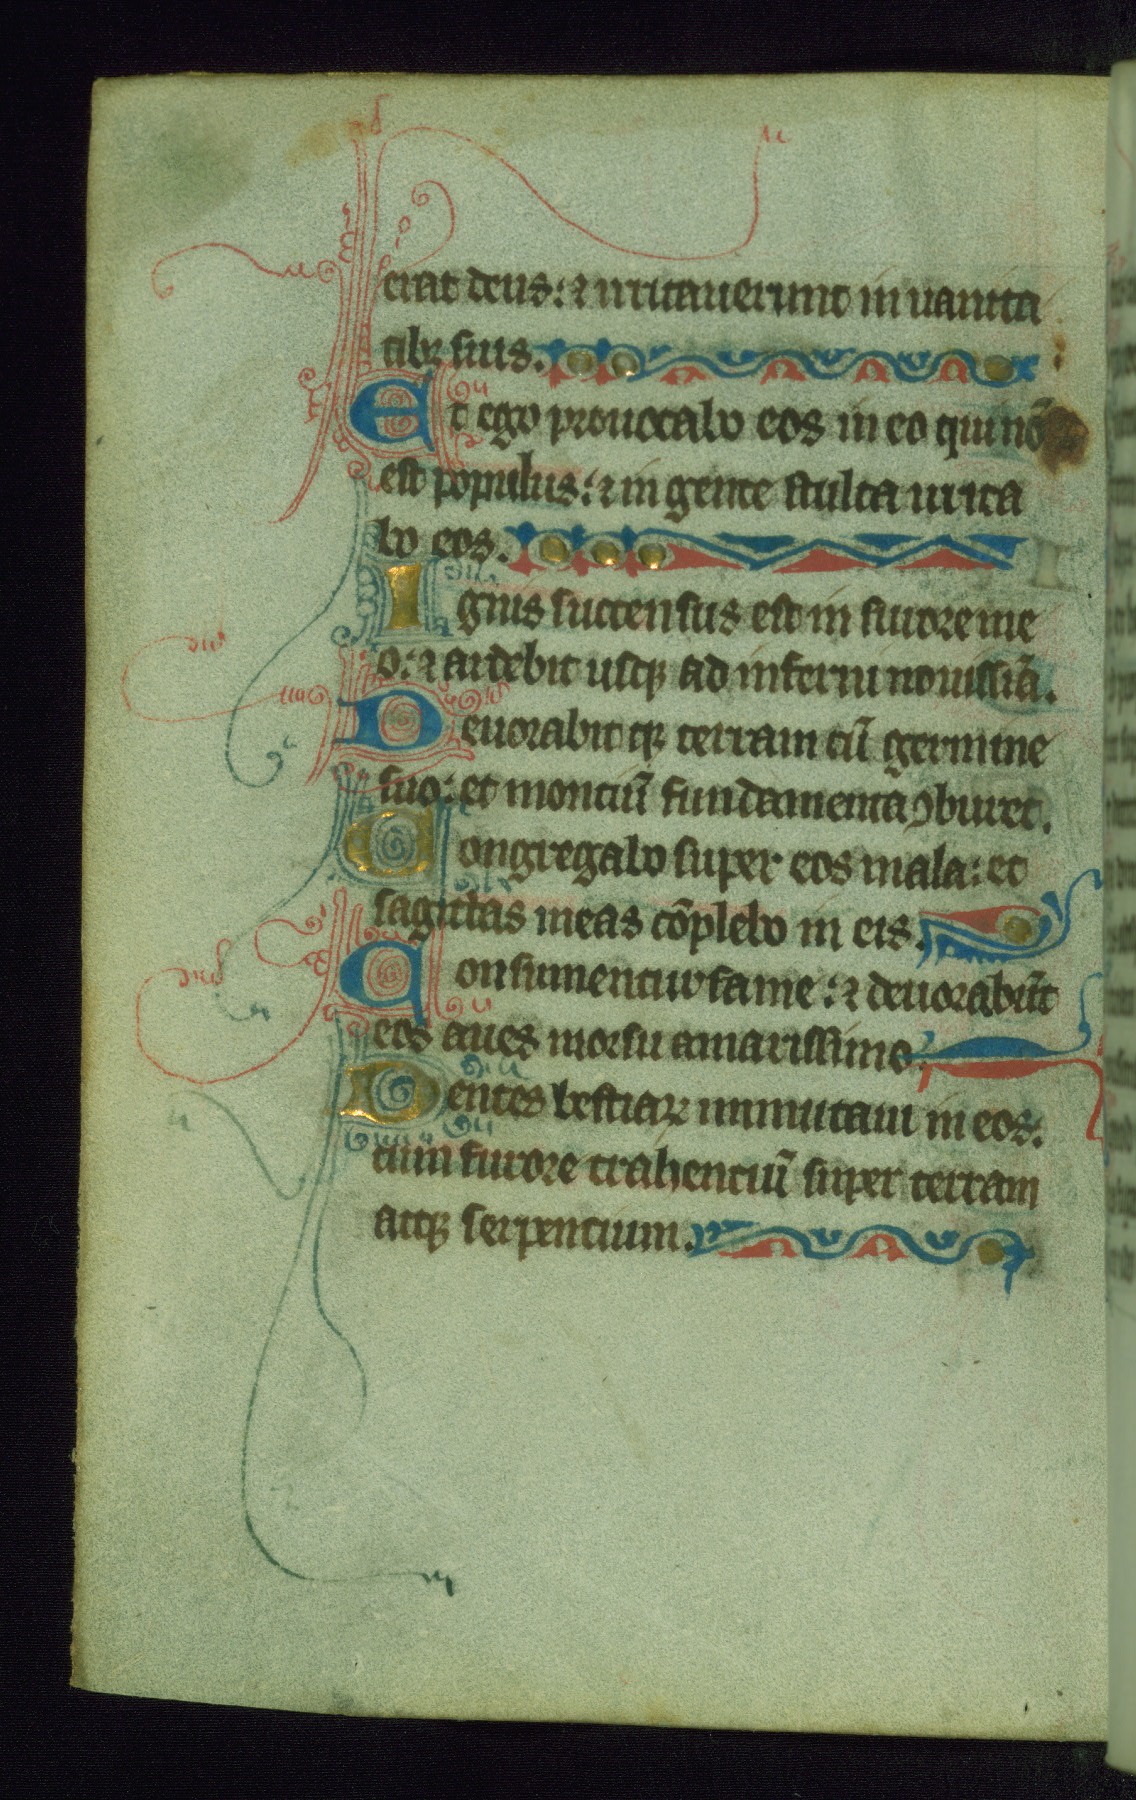 erat deus: ⁊ irritauerunt in uanita
tibꝫ suis.
Et ego prouocabo eos in eo qui nō
est populus: ⁊ in gente stulta irrita
bo eos.
Ignis succensus est in furore me
o: ⁊ ardebit usqꝫ ad inferni nouissīa.
Deuorabit qꝫ terram cū germine
suo: et montiū fundamenta ꝯburet.
Congregabo super eos mala: et
sagittas meas cōplebo in eis.
Consumentur fame: ⁊ deuorabūt
eos aues morsu amarissimo.
Dentes bestiaꝝ immittam in eos:
cum furore trahentiū super terram
atqꝫ serpentium.